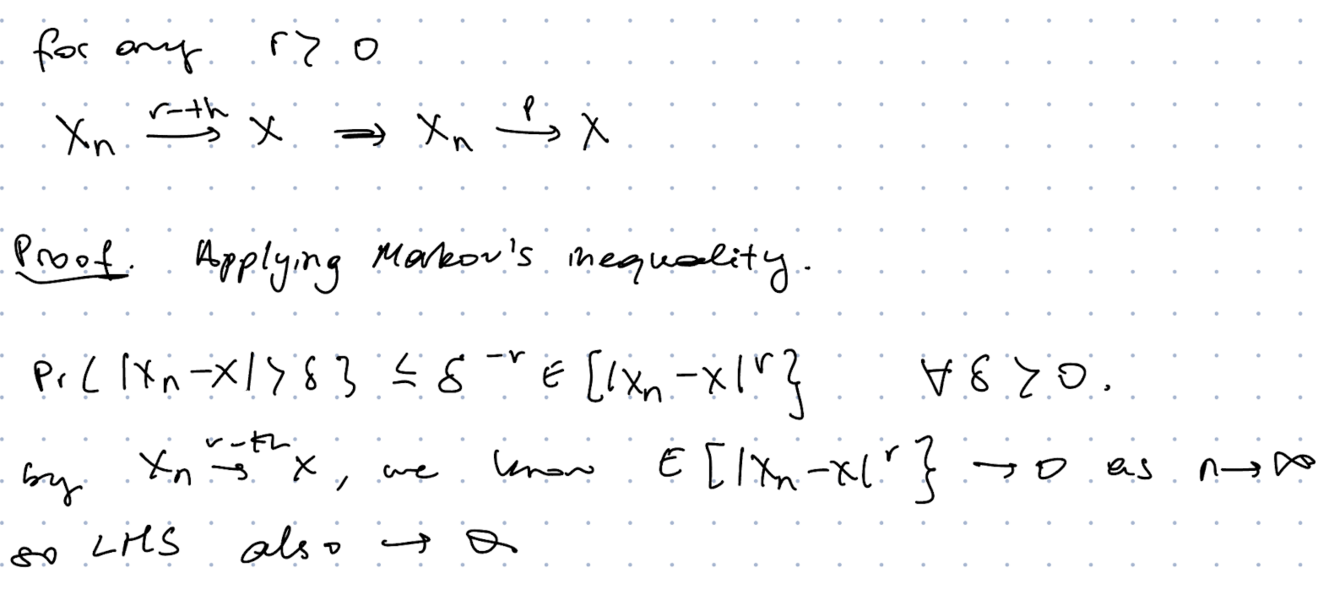 for any r > 0
Xn r-th→ X ⇒ Xn P→ X
Proof. Applying Markov's inequality.
Pr{ |Xn - X| > δ } ≤ δ^-r E[|Xn - X|^r} ∀ δ > 0.
by Xn r-th→ X, we know E[|Xn - X|^r} → 0 as n → ∞
so LHS also → 0